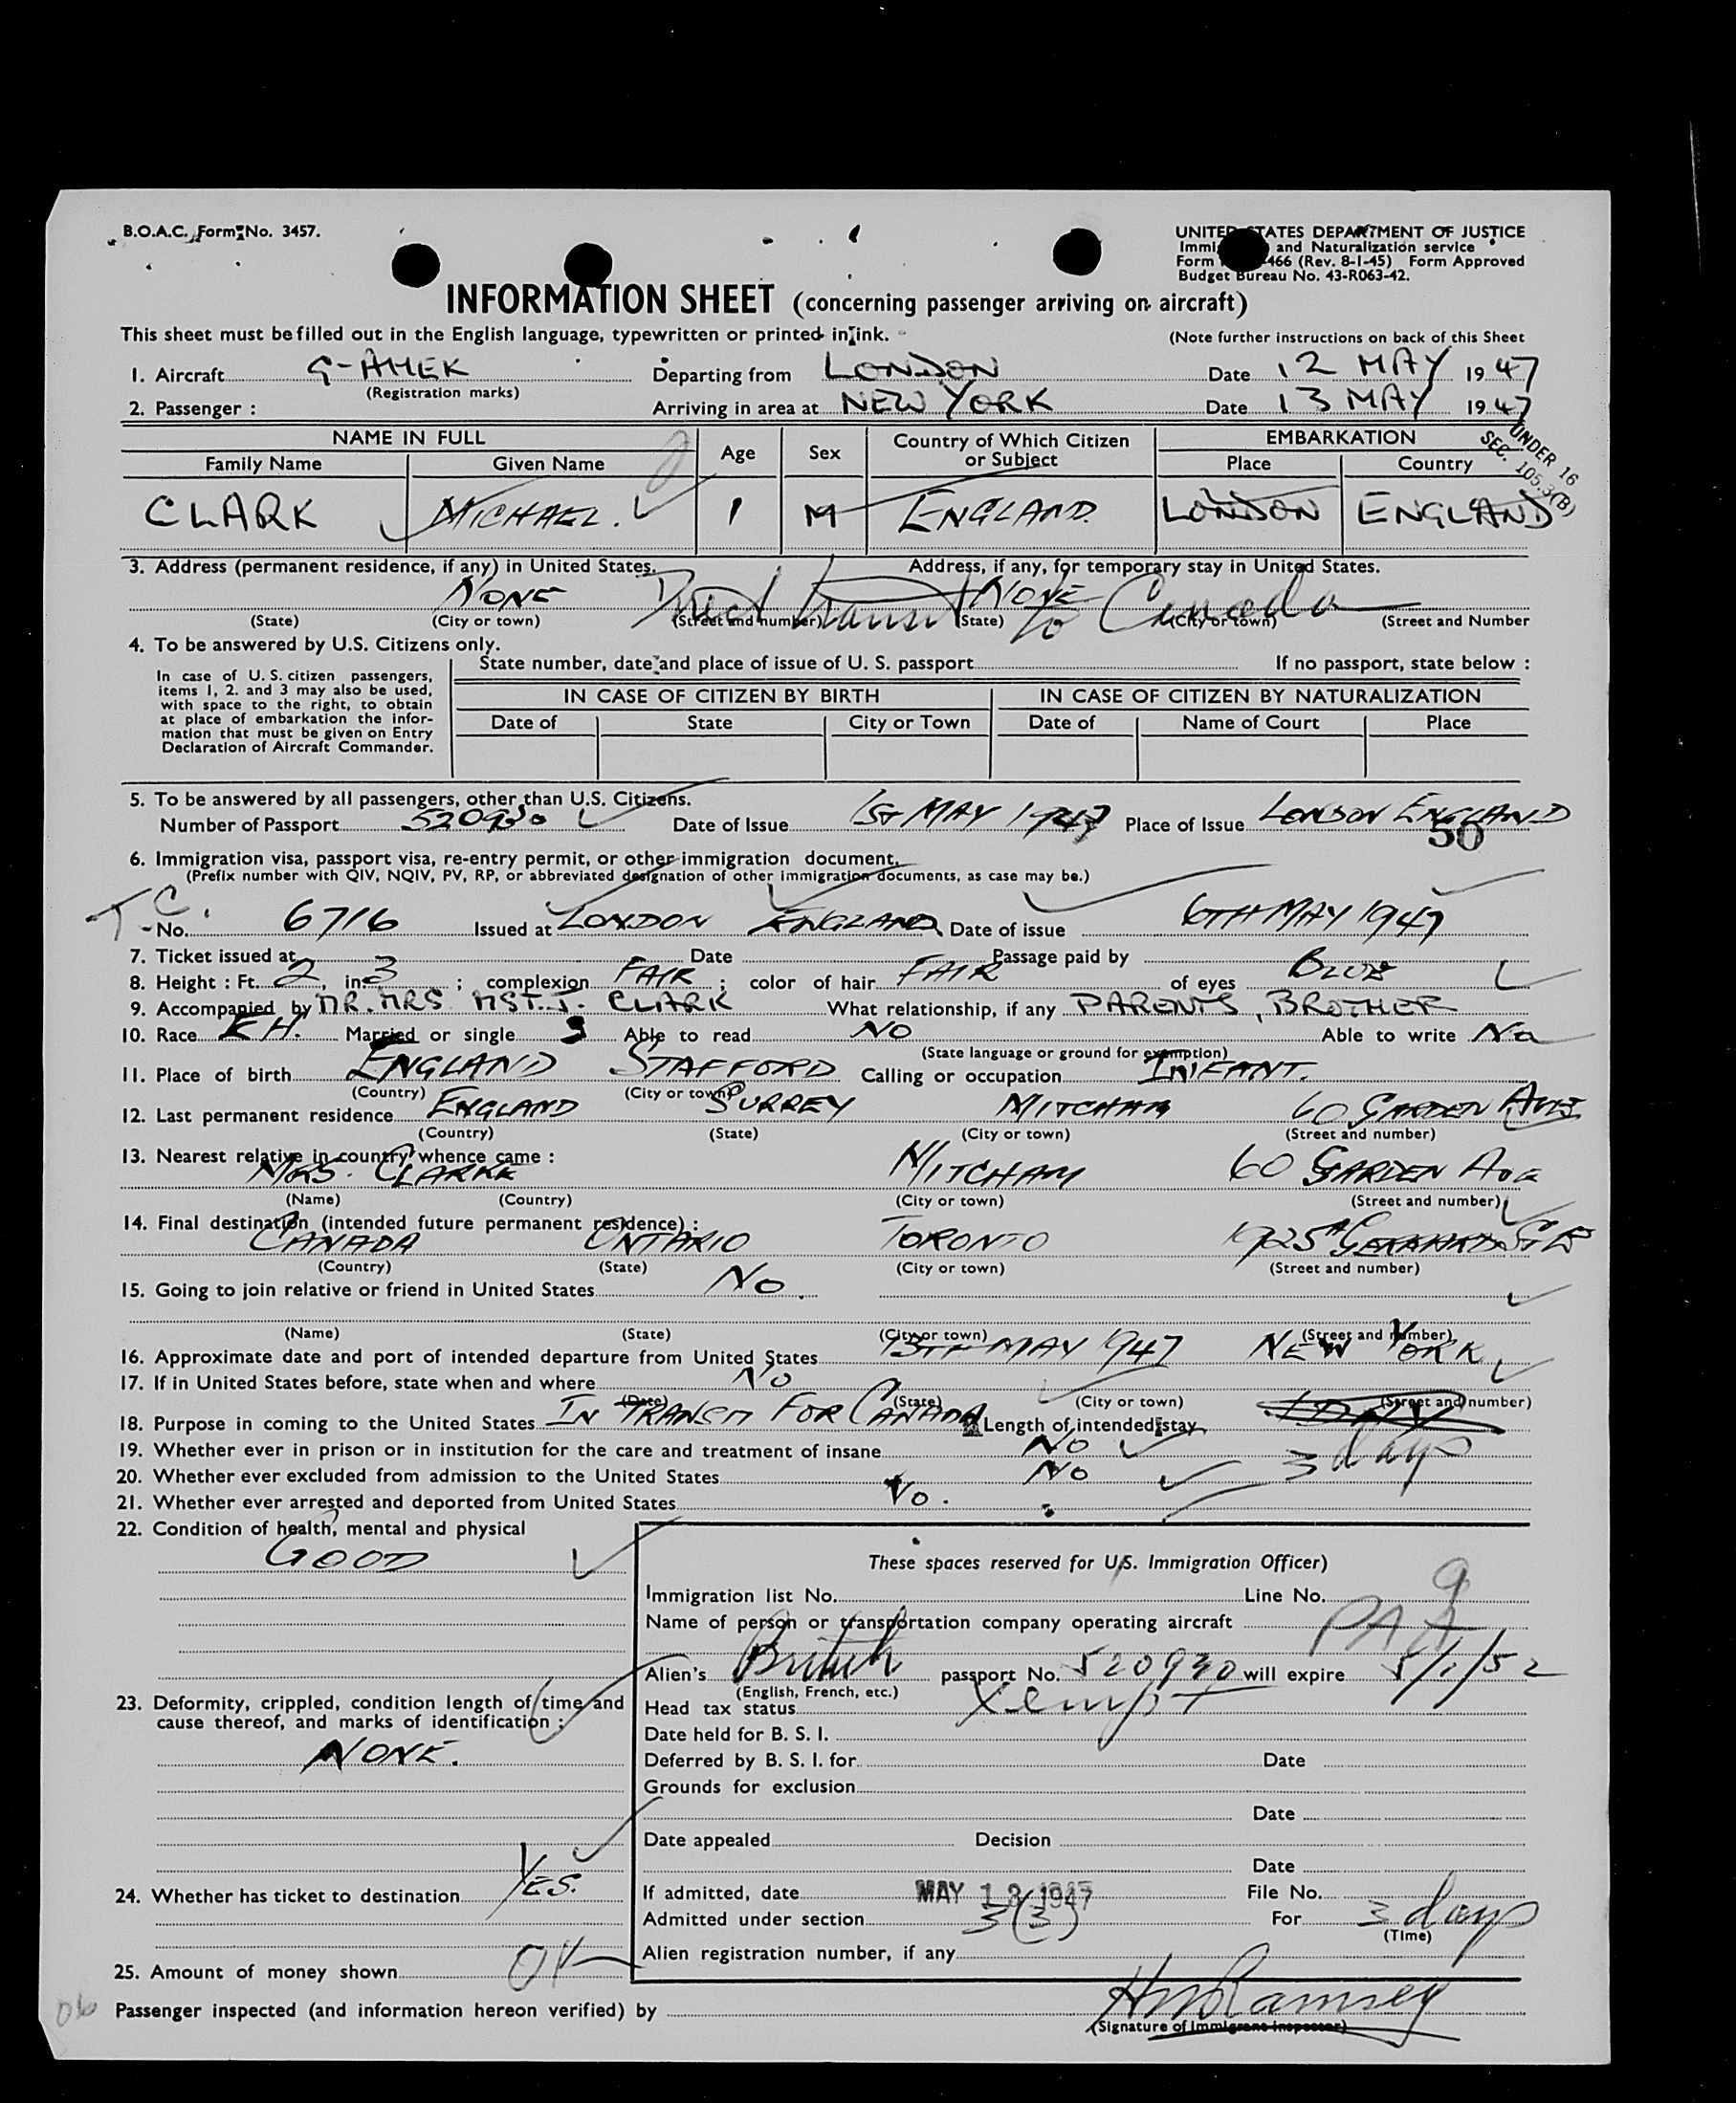 B.O.A.C. Form No. 3457.
UNITED STATES DEPARTMENT OF JUSTICE
and Naturalization service
Form 466 (Rev. 8-1-45) Form Approved
Budget Bureau No. 43-R063-42.
INFORMATION SHEET (concerning passenger arriving on aircraft)
This sheet must be filled out in the English language, typewritten or printed in ink.
(Note further instructions on back of this Sheet
1. Aircraft G-AHEK Departing from LONDON Date 12 MAY 1947
(Registration marks)
2. Passenger : Arriving in area at NEW YORK Date 13 MAY 1947
UNDER 16
SEC. 105.3(B)
NAME IN FULL Age Sex Country of Which Citizen or Subject EMBARKATION
Family Name Given Name Place Country
CLARK MICHAEL. 1 M ENGLAND. LONDON ENGLAND
3. Address (permanent residence, if any) in United States. Address, if any, for temporary stay in United States.
NONE Direct transit NONE to Canada
(State) (City or town) (Street and number) (State) (City or town) (Street and Number
4. To be answered by U.S. Citizens only.
In case of U. S. citizen passengers,
items 1, 2. and 3 may also be used,
with space to the right, to obtain
at place of embarkation the infor-
mation that must be given on Entry
Declaration of Aircraft Commander.
State number, date and place of issue of U. S. passport If no passport, state below :
IN CASE OF CITIZEN BY BIRTH IN CASE OF CITIZEN BY NATURALIZATION
Date of State City or Town Date of Name of Court Place
5. To be answered by all passengers, other than U.S. Citizens.
Number of Passport 520930 Date of Issue 1ST MAY 1947 Place of Issue LONDON ENGLAND
50
6. Immigration visa, passport visa, re-entry permit, or other immigration document.
(Prefix number with QIV, NQIV, PV, RP, or abbreviated designation of other immigration documents, as case may be.)
T C. No. 6716 Issued at LONDON ENGLAND Date of issue 6TH MAY 1947
7. Ticket issued at Date Passage paid by
8. Height : Ft. 2, in 3 ; complexion FAIR ; color of hair FAIR of eyes BLUE
9. Accompanied by MR. MRS MST. J. CLARK What relationship, if any PARENTS, BROTHER
10. Race EH. Married or single S Able to read NO Able to write No
(State language or ground for exemption)
11. Place of birth ENGLAND STAFFORD Calling or occupation INFANT.
(Country) (City or town)
12. Last permanent residence ENGLAND SURREY MITCHAM 60 GARDEN AVE
(Country) (State) (City or town) (Street and number)
13. Nearest relative in country whence came :
MRS. CLARKE MITCHAM 60 GARDEN AVE
(Name) (Country) (City or town) (Street and number)
14. Final destination (intended future permanent residence) :
CANADA ONTARIO TORONTO 1925A GERRARD ST E
(Country) (State) (City or town) (Street and number)
15. Going to join relative or friend in United States No.
(Name) (State) (City or town) (Street and number)
16. Approximate date and port of intended departure from United States 13TH MAY 1947 NEW YORK
17. If in United States before, state when and where NO
(Date) (State) (City or town) (Street and number)
18. Purpose in coming to the United States IN TRANSIT FOR CANADA Length of intended stay 3 days
19. Whether ever in prison or in institution for the care and treatment of insane No
20. Whether ever excluded from admission to the United States No
21. Whether ever arrested and deported from United States No.
22. Condition of health, mental and physical
GOOD
These spaces reserved for U.S. Immigration Officer)
Immigration list No. Line No. 9
Name of person or transportation company operating aircraft PAA
Alien's British passport No. 520930 will expire 5/1/52
(English, French, etc.)
23. Deformity, crippled, condition length of time and
cause thereof, and marks of identification :
NONE.
Head tax status Xempt
Date held for B. S. I.
Deferred by B. S. I. for Date
Grounds for exclusion
Date
Date appealed Decision
Date
24. Whether has ticket to destination YES.
If admitted, date MAY 13 1947 File No.
Admitted under section 3(3) For 3 days
(Time)
Alien registration number, if any
25. Amount of money shown OK
Passenger inspected (and information hereon verified) by
(Signature of Immigrant Inspector)